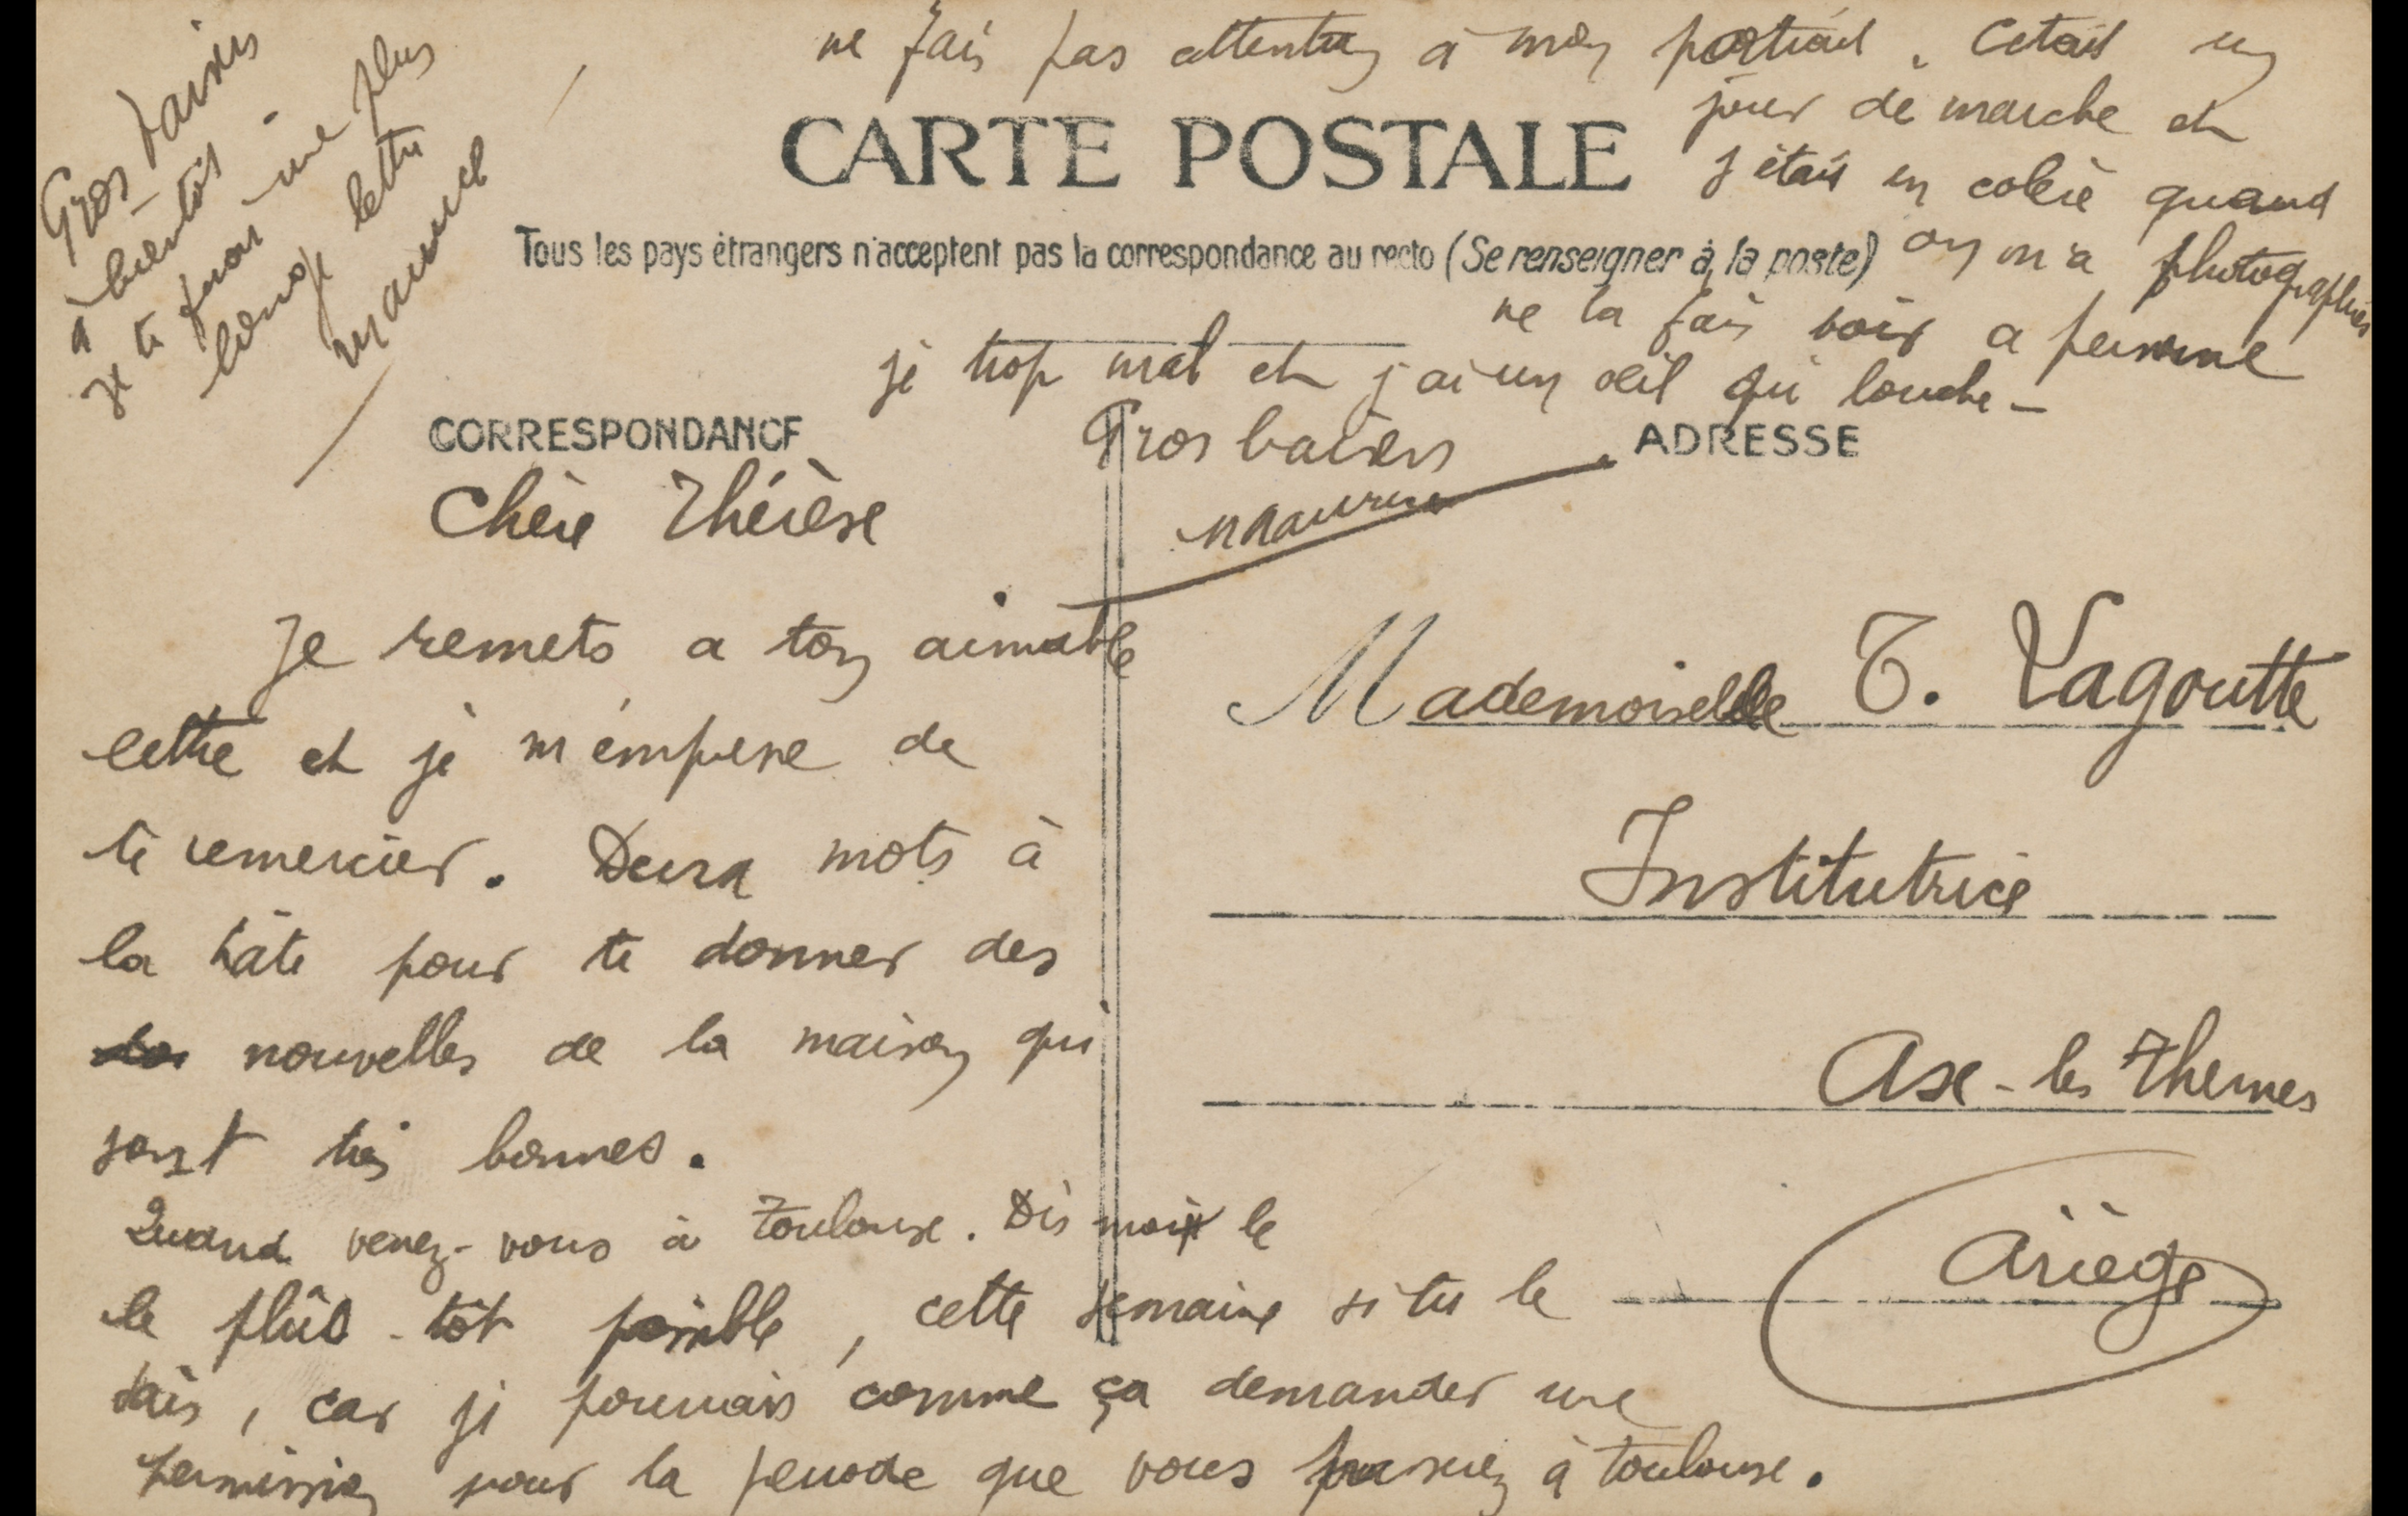 ne fais pas attention à mon portrait. Cetait un
jour de marche et
j'étais en colère quand
on m'a photographié
ne la fais voir a personne
je trop mal et j'ai un œil qui louche -
Gros baisers
Maurice
CARTE POSTALE
Tous les pays étrangers n'acceptent pas la correspondance au recto (Se renseigner à la poste)
Gros baisers
à bientôt.
je te ferai une plus
longue lettre
Maurice
CORRESPONDANCE
ADRESSE
Chère Thérèse
Je remets a ton aimable
lettre et je m'empresse de
te remercier. Deux mots à
la hâte pour te donner des
nouvelles de la maison qui
sont très bonnes.
Quand venez-vous à Toulouse. Dis moi le
le plus tôt possible, cette semaine si tu le
sais, car je pourrais comme ça demander une
permission pour la periode que vous à Toulouse.
Mademoiselle T. Lagoutte
Institutrice
Ax-les Thermes
Ariège